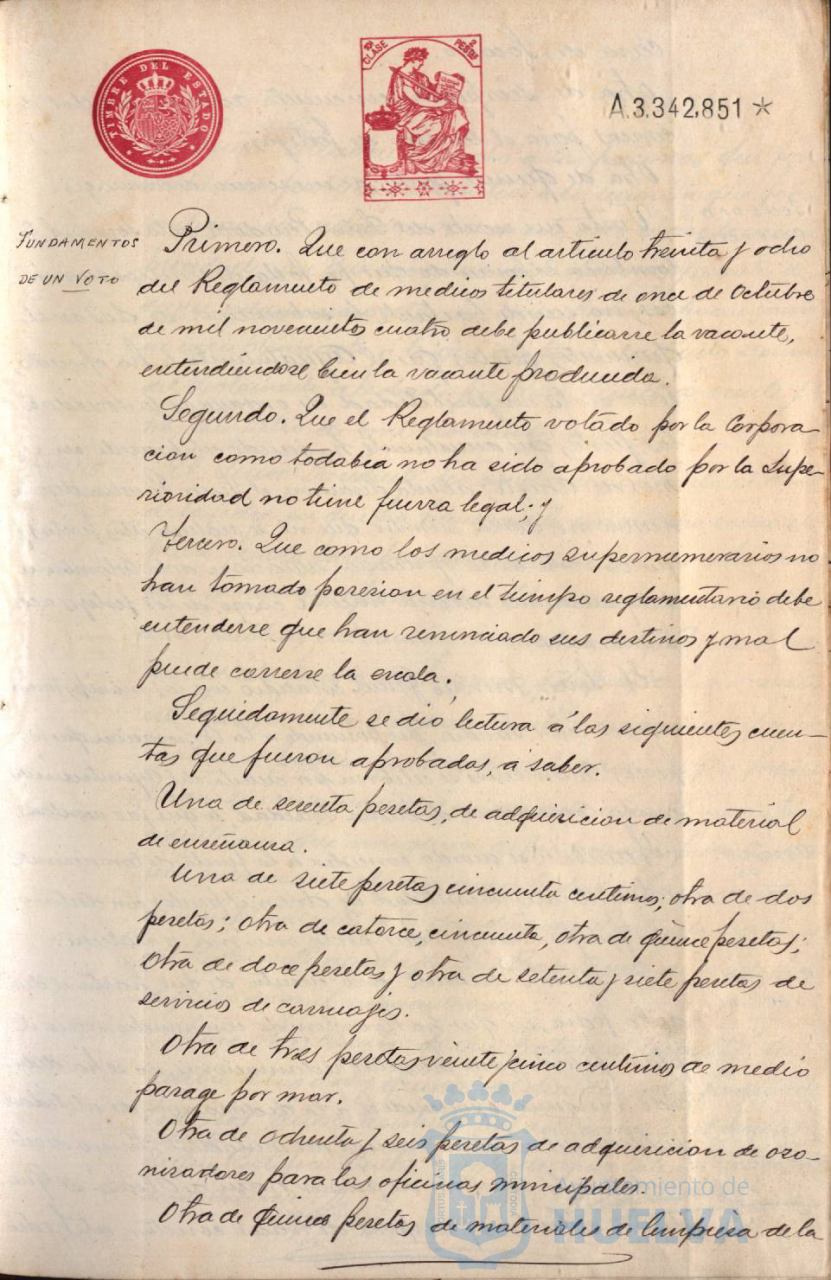 TIMBRE DEL ESTADO
10ª CLASE
2 PESETAS
A.3.342,851 *
FUNDAMENTOS
DE UN VOTO
Primero. Que con arreglo al articulo treinta y ocho
del Reglamento de medicos titulares de once de Octubre
de mil novecientos cuatro debe publicarse la vacante,
entendiéndose bien la vacante producida.
Segundo. Que el Reglamento votado por la Corpora-
cion como todabia no ha sido aprobado por la Supe-
rioridad no tiene fuerza legal; y
Tercero. Que como los medicos supernumerarios no
han tomado posesion en el tiempo reglamentario debe
entenderse que han renunciado sus destinos y mal
puede correrse la escala.
Seguidamente se dió lectura á las siguientes cuen-
tas que fueron aprobadas, á saber.
Una de sesenta pesetas, de adquisicion de material
de enseñanza.
Una de siete pesetas cincuenta centimos; otra de dos
pesetas; otra de catorce, cincuenta, otra de quince pesetas;
otra de doce pesetas y otra de setenta y siete pesetas de
servicios de carruajes.
Otra de tres pesetas veinte y cinco centimos de medio
pasage por mar.
Otra de ochenta y seis pesetas de adquisicion de ozo-
nizadores para las oficinas municipales.
Otra de quince pesetas de materiales de limpieza de la
Ayuntamiento de
HUELVA